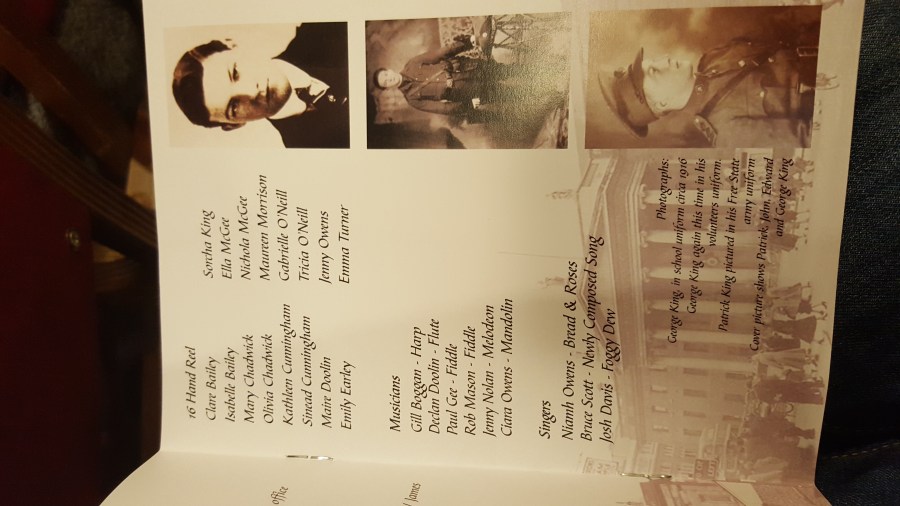 16 Hand Reel
Clare Bailey
Isabelle Bailey
Mary Chadwick
Olivia Chadwick
Kathleen Cunningham
Sinead Cunningham
Maire Doolin
Emily Earley
Sorcha King
Ella McGee
Nichola McGee
Maureen Morrison
Gabrielle O'Neill
Tricia O'Neill
Jenny Owens
Emma Turner
Musicians
Gill Boggan - Harp
Declan Doolin - Flute
Paul Gee - Fiddle
Rob Mason - Fiddle
Jenny Nolan - Melodeon
Ciara Owens - Mandolin
Singers
Niamh Owens - Bread & Roses
Bruce Scott - Newly Composed Song
Josh Davis - Foggy Dew
Photographs:
George King, in school uniform circa 1916
George King again this time in his
volunteers uniform.
Patrick King pictured in his Free State
army uniform
Cover picture shows Patrick, John, Edward
and George King
office
James